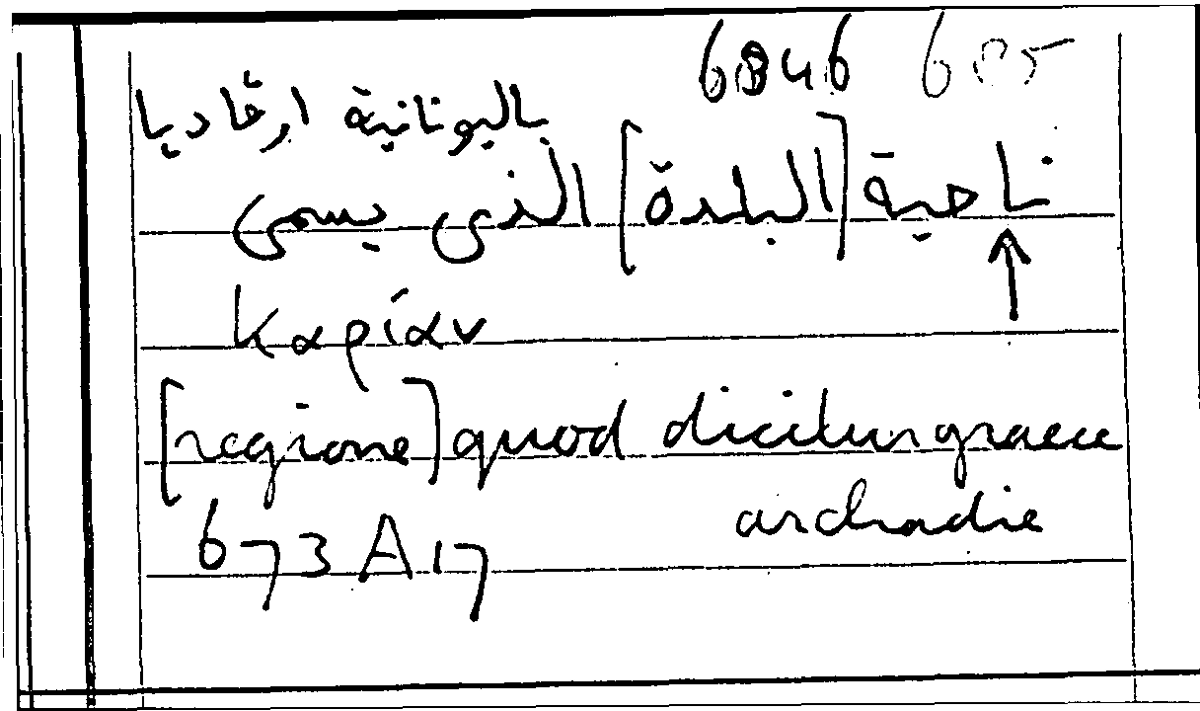 6846
باليونانية ارقاديا
ناحية [البلدة] الذى يسمى
↑
Καρίαν
[regione] quod dicitur graece
archadie
673 A 17